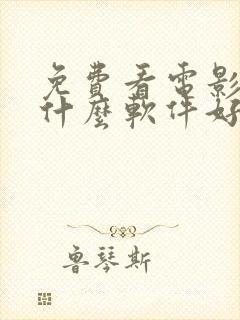 免費看電影
什麼軟件好
魯琴斯